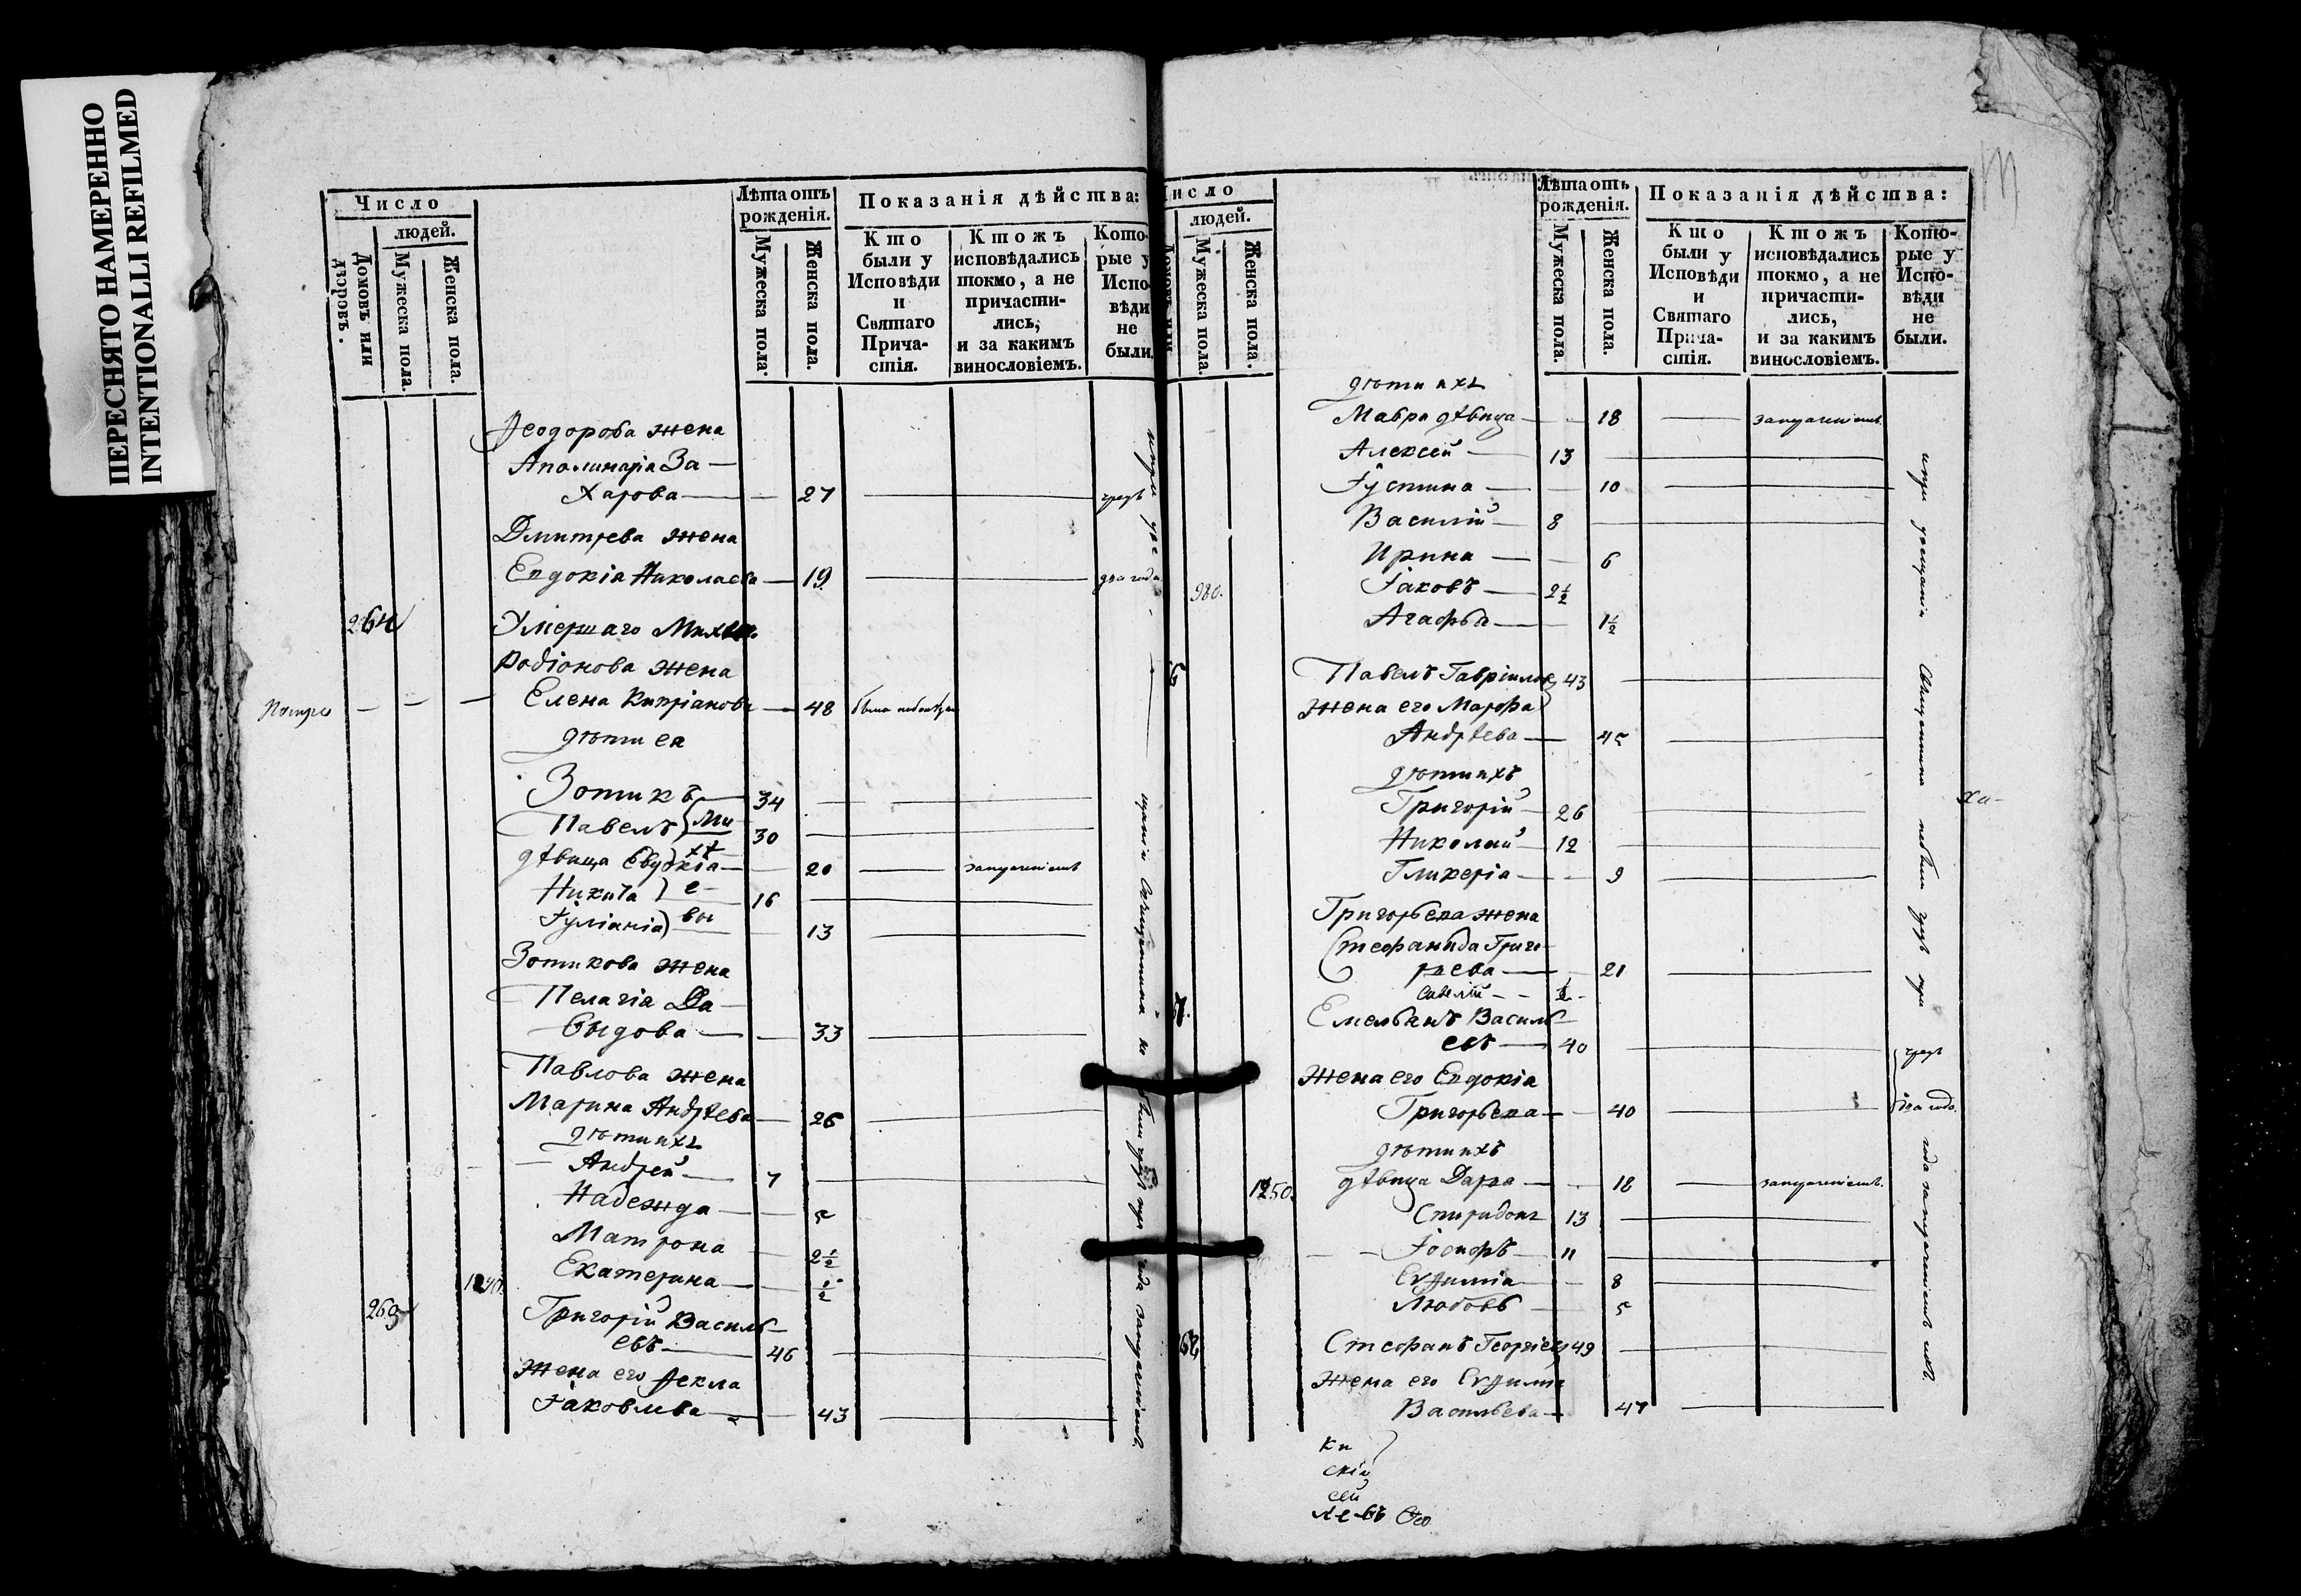 ПЕРЕСНЯТО НАМЕРЕННО
INTENTIONALLI REFILMED
Число
людей.
Домовъ или дворовъ.
Мужеска пола.
Женска пола.
Лѣта отъ рожденія.
Мужеска пола.
Женска пола.
Показанія дѣйства:
Кто были у Исповѣди и Святаго Причастія.
Ктожъ исповѣдались токмо, а не причастились, и за какимъ винословіемъ.
Которые у Исповѣди не были.
Ѳеодорова жена
Аполинарія За-
харова 27
Дмитрева жена
Евдокія Николаева 19 два года
264 Умершаго
Родіонова жена
Елена Кипріанова 48 была
дѣти ея
Зотикъ 34
Павелъ 30
дѣвица Евдокія 20 запущеніемъ
Никита 16
Іуліанія 13
Зотикова жена
Пелагія Да-
выдова 33
Павлова жена
Марина Андрѣева 26
дѣти ихъ
Андрей 7
Надежда 5
Матрона 2½
Екатерина ½
1240.
265 Григорій Василь-
евъ 46
жена его Ѳекла
Іаковлева 43
Число
людей.
Мужеска пола.
Женска пола.
Лѣта отъ рожденія.
Мужеска пола.
Женска пола.
Показанія дѣйства:
Кто были у Исповѣди и Святаго Причастія.
Ктожъ исповѣдались токмо, а не причастились, и за какимъ винословіемъ.
Которые у Исповѣди не были.
дѣти ихъ
Мавра дѣвица 18 запущеніемъ
Алексей 13
Іустина 10
Василій 8
Ирина 6
980. Іаковъ 2½
Агафья 1½
Павелъ Гавріиловъ 43
жена его Марфа
Андрѣева 45
дѣти ихъ
Григорій 26
Николай 12
Гликерія 9
Григорьева жена
Стефанида Григо-
рьева 21
Савелій ½
Емельянъ Василь-
евъ 40
жена его Евдокія
Григорьева 40 два года
дѣти ихъ
1250. дѣвица Дарья 18 запущеніемъ.
Спиридонъ 13
Іосифъ 11
Евѳимія 8
Любовь 5
Стефанъ Георгіевъ 49
жена его Евѳимія
Васильева 47
Ки
скій
сей